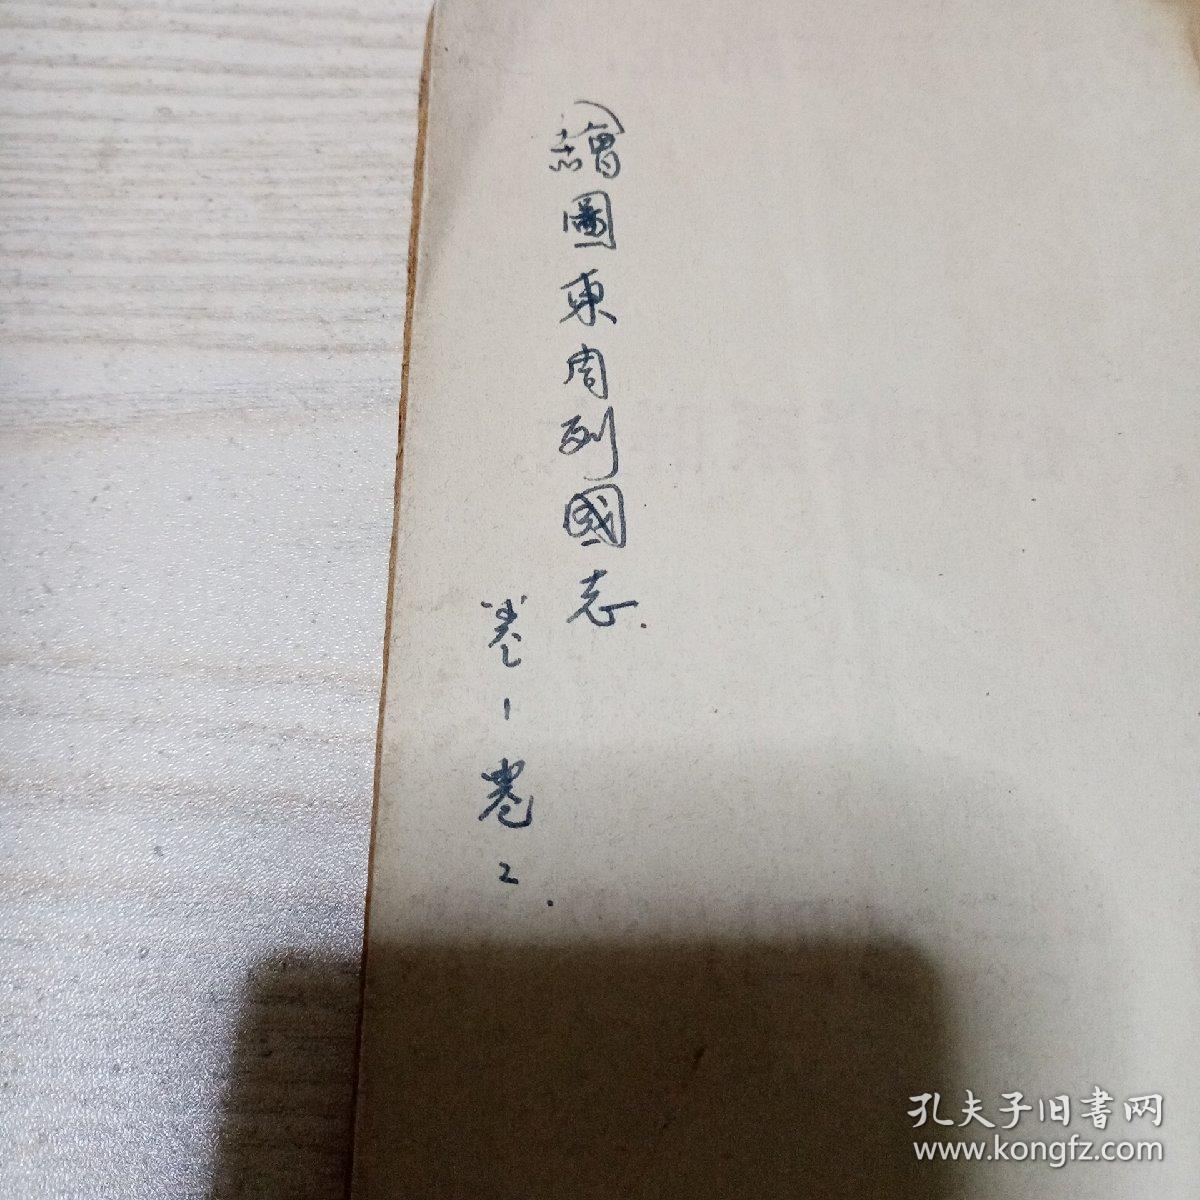 繪圖東周列國志.
卷1卷2.
孔夫子旧書网
www.kongfz.com